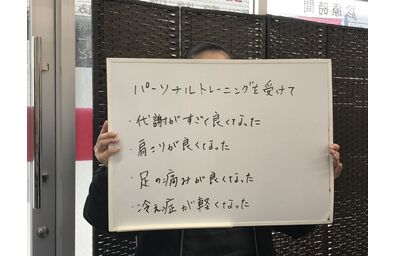 診療時間
パーソナルトレーニングを受けて
・代謝がすごく良くなった
・肩こりが良くなった
・足の痛みが良くなった
・冷え症が軽くなった